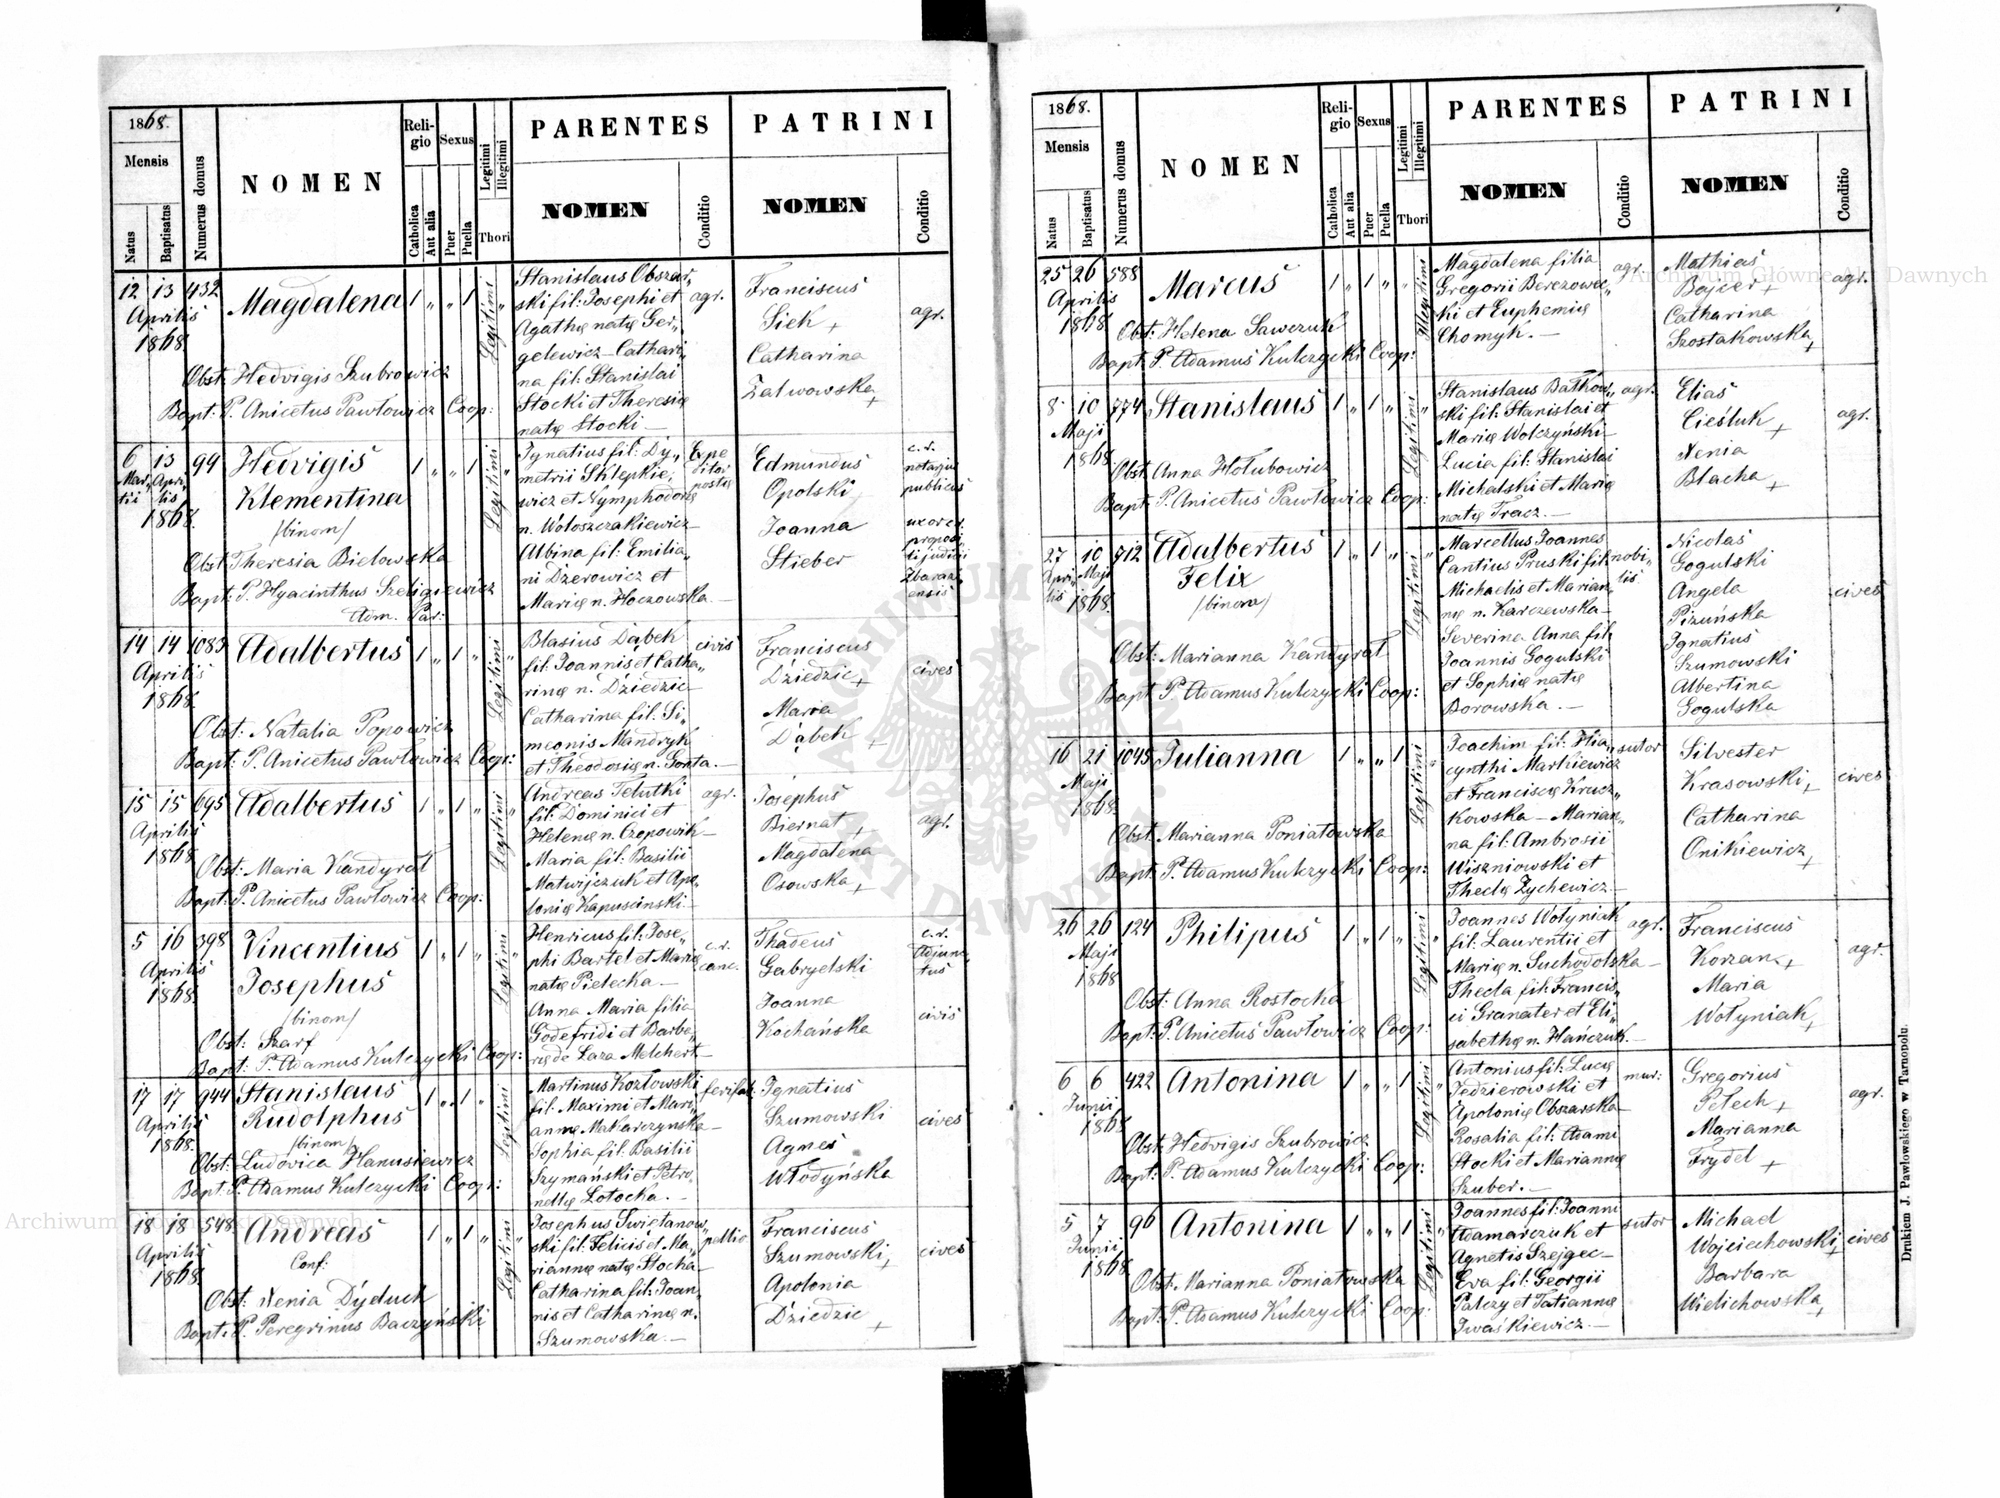 1868.
Mensis
Natus
Baptisatus
Numerus domus
NOMEN
Religio
Catholica
Aut alia
Sexus
Puer
Puella
Legitimi
Illegitimi
Thori
PARENTES
NOMEN
Conditio
PATRINI
NOMEN
Conditio
12 13 432
Aprilis
1868.
Magdalena 1 „ „ 1
Legitimi
Obst: Hedvigis Szubrowicz
Bapt: P. Anicetus Pawłowicz Coop:
Stanislaus Obszar„
ski fil: Josephi et
Agathę natę Ger„
gelewicz – Cathari„
na fil: Stanislai
Stocki et Theresię
natę Stocki. –
agr.
Franciscus
Siek +
Catharina
Zalwowska +
agr.
6 13 94
Mar„ Apri„
tii lis
1868.
Hedvigis 1 „ „ 1
Klementina
/binom/
Legitimi
Obst: Theresia Bielowska
Bapt: P. Hyacinthus Szeligiewicz
Adm. Par:
Ignatius fil: Dy„
metrii Sklepkie„
wicz et Nymphodorę
n. Wołoszczakiewicz –
Albina fil: Emilia„
ni Dzerowicz et
Marię n. Hoczowska. –
Expe
ditor
postię
Edmundus
Opolski
Joanna
Stieber
c. r.
notarius
publicus
uxor c. r.
proposi„
ti judicii
Zbaraz„
ensis
14 14 1083
Aprilis
1868.
Adalbertus 1 „ 1 „
Legitimi
Obst: Natalia Popowicz
Bapt: P. Anicetus Pawłowicz Coop:
Blasius Dąbek
fil: Joannis et Catha„
rinę n. Dziedzic –
Catharina fil: Si„
meonis Mandryk
et Theodosię n. Gonta. –
civis
Franciscus
Dziedzic +
Maria
Dąbek +
cives
15 15 695
Aprilis
1868.
Adalbertus 1 „ 1 „
Legitimi
Obst: Maria Kandyrał
Bapt: P. Anicetus Pawłowicz Coop:
Andreas Telutki
fil: Dominici et
Helenę n. Czopowik –
Maria fil: Basilii
Matwijczuk et Apo„
lonię Kapuscinski –
agr.
Josephus
Biernat +
Magdalena
Osowska +
agr.
5 16 398
Aprilis
1868.
Vincentius 1 „ 1 „
Josephus
/binom/
Legitimi
Obst: Szarf
Bapt: P. Adamus Kulczycki Coop:
Henricus fil: Jose„
phi Bartel et Marię
natę Pielecka. –
Anna Maria filia
Godefridi et Barba„
rię de Laza Melchert –
c. r.
canc.
Thadeus
Gabryelski
Joanna
Kochańska
c. r.
Adjunc„
tus
civis
17 17 944
Aprilis
1868.
Stanislaus 1 „ 1 „
Rudolphus
/binom/
Legitimi
Obst: Ludovica Hanusiewicz
Bapt: P. Adamus Kulczycki Coop:
Martinus Kozłowski
fil: Maximi et Mari„
annę Makarczynska –
Sophia fil: Basilii
Szymański et Petro„
nellę Łotocka. –
Ignatius
Szumowski
Agnes
Włodyńska
cives
18 18 548
Aprilis
1868.
Andreas 1 „ 1 „
Conf:
Legitimi
Obst: Xenia Dyduch
Bapt: P. Peregrinus Baczyński
Josephus Swiętanow„
ski fil: Felicis et Ma„
riannę natę Stocha –
Catharina fil: Joan„
nis et Catharinę n.
Szumowska. –
pellio
Franciscus
Szumowski +
Apolonia
Dziedzic +
cives
1868.
Mensis
Natus
Baptisatus
Numerus domus
NOMEN
Religio
Catholica
Aut alia
Sexus
Puer
Puella
Legitimi
Illegitimi
Thori
PARENTES
NOMEN
Conditio
PATRINI
NOMEN
Conditio
25 26 588
Aprilis
1868
Marcus 1 „ 1 „
Illegitimi
Obst: Helena Sawczuk
Bapt: P. Adamus Kulczycki Coop:
Magdalena filia
Gregorii Berezowec„
ki et Euphemię
Chomyk. –
agr.
Mathias
Bojcer +
Catharina
Szostakowska +
agr.
8 10 774
Maji
1868
Stanislaus 1 „ 1 „
Legitimi
Obst: Anna Hołubowicz
Bapt: P. Anicetus Pawłowicz Coop:
Stanislaus Bałkow„
ski fil: Stanislai et
Marię Wolczyński –
Lucia fil: Stanislai
Michalski et Marię
natę Tracz. –
agr.
Elias
Cieśluk +
Xenia
Blacha +
agr.
27 10 712
Apri„ Maji
lis 1868.
Adalbertus 1 „ 1 „
Felix
/binom/
Legitimi
Obst: Marianna Kandyrał
Bapt: P. Adamus Kulczycki Coop:
Marcellus Joannes
Cantius Pruski fil:
Michaelis et Marian„
nę n. Karczewska –
Severina Anna fil:
Joannis Gogulski
et Sophię natę
Borowska. –
nobi„
lis
Nicolas
Gogulski
Angela
Pizuńska
Ignatius
Szumowski
Albertina
Gogulska
cives
16 21 1045
Maji
1868.
Julianna 1 „ „ 1
Legitimi
Obst: Marianna Poniatowska
Bapt: P. Adamus Kulczycki Coop:
Joachim fil: Hia„
cynthi Markiewicz
et Franciscę Krucz„
kowska – Marian„
na fil: Ambrosii
Wiszniowski et
Theclę Zychewicz –
sutor
Silvester
Krasowski +
Catharina
Onikiewicz +
cives
26 26 124
Maji
1868
Philipus 1 „ 1 „
Legitimi
Obst: Anna Rostocka
Bapt: P. Anicetus Pawłowicz Coop:
Joannes Wołyniak
fil: Laurentii et
Marię n. Suchodolska –
Thecla fil: Francis„
ci Granater et Eli„
sabethę n. Hańczuk. –
agr.
Franciscus
Korzan +
Maria
Wołyniak +
agr.
6 6 422
Junii
1868
Antonina 1 „ „ 1
Legitimi
Obst: Hedvigis Szubrowicz
Bapt: P. Adamus Kulczycki Coop:
Antonius fil: Lucę
Jedzierowski et
Apolonię Obszarska –
Rosalia fil: Adami
Stocki et Mariannę
Szuber. –
mur:
Gregorius
Pełech +
Marianna
Frydel +
agr.
5 7 96
Junii
1868
Antonina 1 „ „ 1
Legitimi
Obst: Marianna Poniatowska
Bapt: P. Adamus Kulczycki Coop:
Joannes fil: Joannis
Adamarczuk et
Agnetis Szejgec –
Eva fil: Georgii
Palczy et Tatiannę
Iwaśkiewicz. –
sutor
Michael
Wojciechowski +
Barbara
Wielichowska +
cives
Drukiem J. Pawłowskiego w Tarnopolu.
Archiwum Główne Akt Dawnych
Archiwum Główne Akt Dawnych
ARCHIWUM GŁÓWNE AKT DAWNYCH